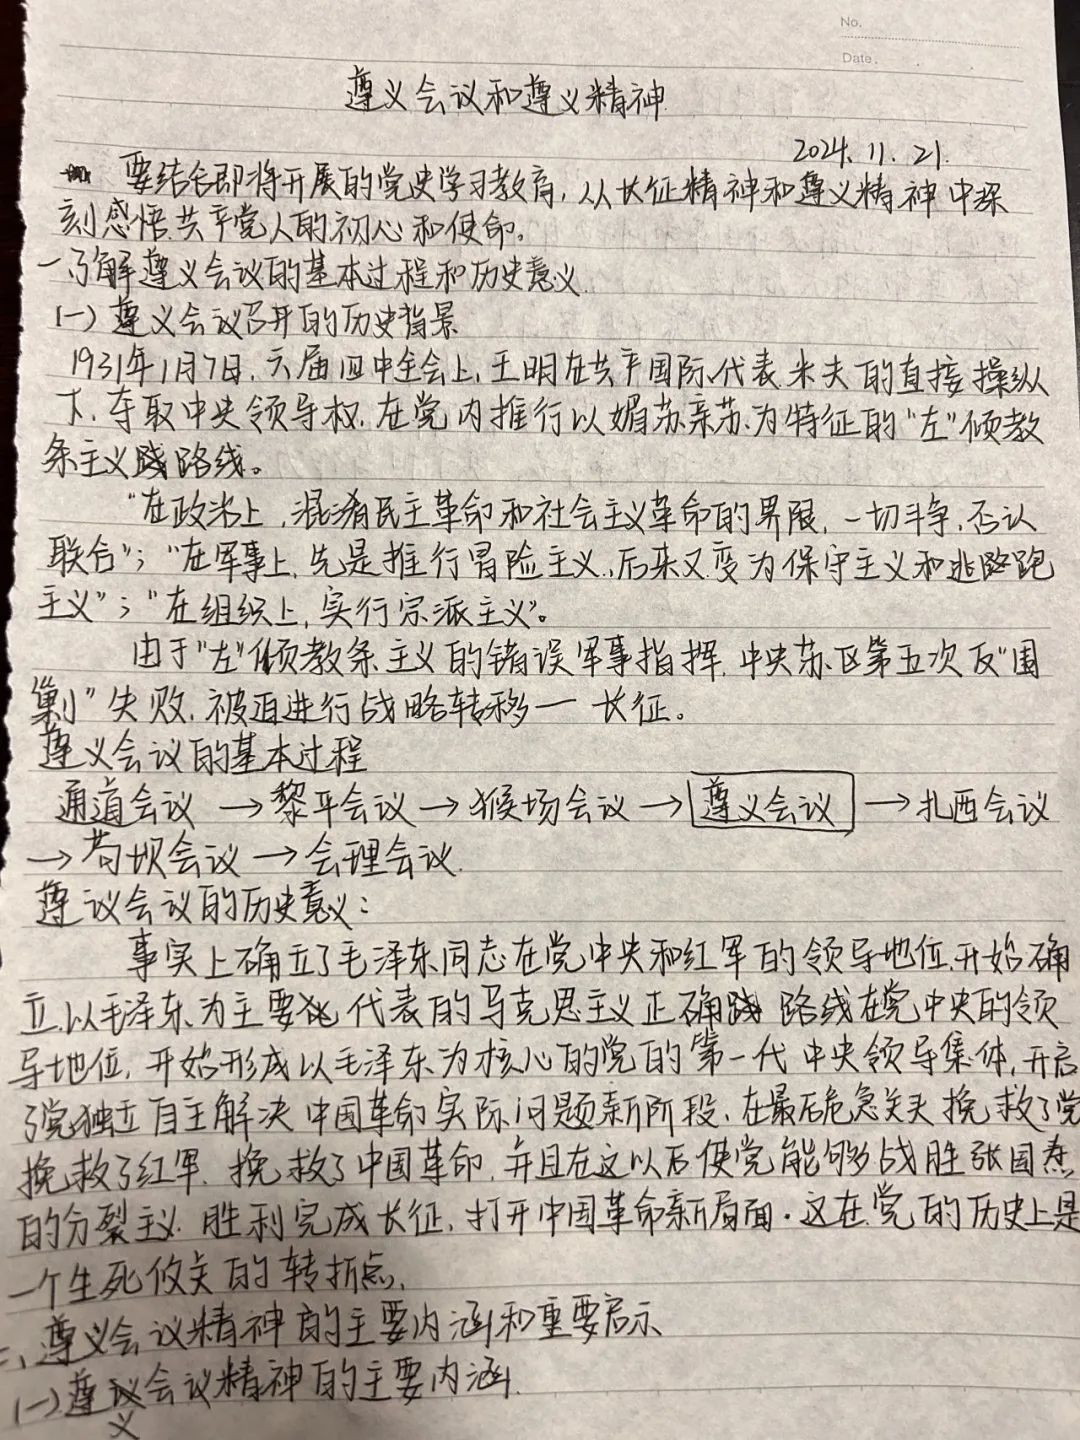 No.
Date.
遵义会议和遵义精神
2024.11.21.
要结合即将开展的党史学习教育,从长征精神和遵义精神中深
刻感悟共产党人的初心和使命。
一、了解遵义会议的基本过程和历史意义
(一)遵义会议召开的历史背景
1931年1月7日,六届四中全会上,王明在共产国际代表米夫的直接操纵
下,夺取中央领导权,在党内推行以媚苏亲苏为特征的"左"倾教
条主义路线。
"在政治上,混淆民主革命和社会主义革命的界限,一切斗争,否认
联合";"在军事上,先是推行冒险主义,后来又变为保守主义和逃跑
主义";"在组织上,实行宗派主义"。
由于"左"倾教条主义的错误军事指挥,中央苏区第五次反"围
剿"失败,被迫进行战略转移一长征。
遵义会议的基本过程
通道会议→黎平会议→猴场会议→遵义会议→扎西会议
→苟坝会议→会理会议.
遵议会议的历史意义:
事实上确立了毛泽东同志在党中央和红军的领导地位,开始确
立以毛泽东为主要代表的马克思主义正确路线在党中央的领
导地位,开始形成以毛泽东为核心的党的第一代中央领导集体,开启
了党独立自主解决中国革命实际问题新阶段,在最后危急关头挽救了党
挽救了红军,挽救了中国革命,并且在这以后使党能够战胜张国焘
的分裂主义,胜利完成长征,打开中国革命新局面.这在党的历史上是
一个生死攸关的转折点.
二、遵义会议精神的主要内涵和重要启示
(一)遵义会议精神的主要内涵.